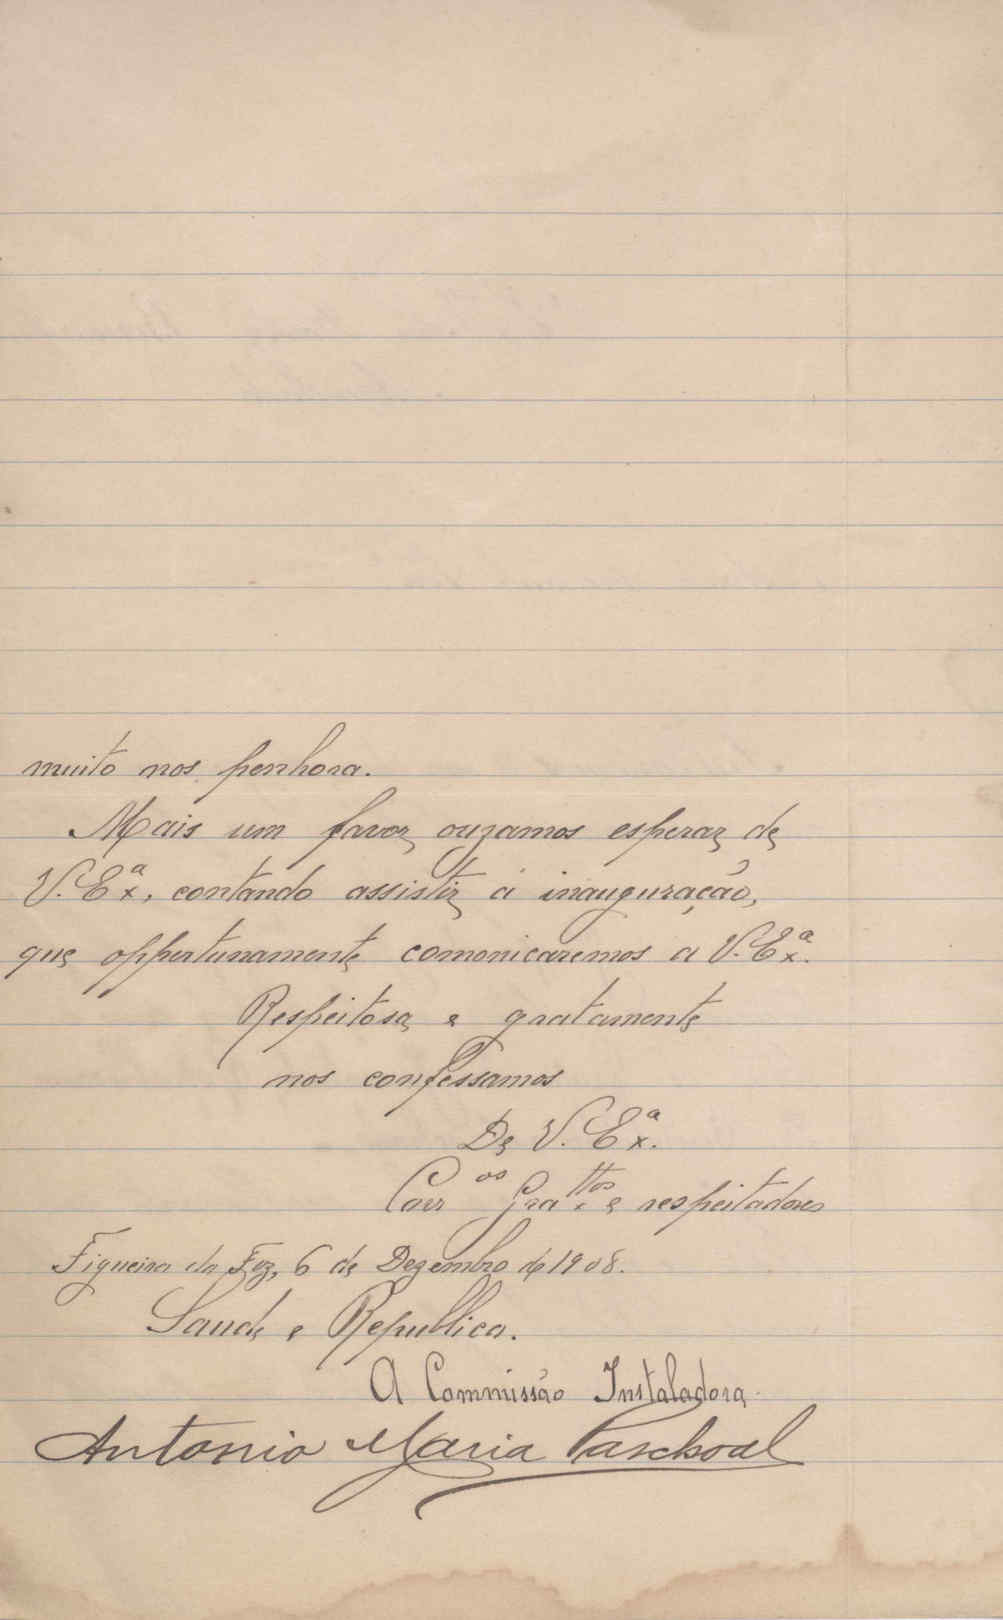 muito nos penhora.
Mais um favor ouzamos esperar de
V. Exª. contando assistir á inauguração,
que oppurtunamente comonicaremos a V. Exª.
Respeitosa e gratamente
nos confessamos
De V. Exª.
Corr.os Gra.ttos e respeitadores
Figueira da Foz, 6 de Dezembro de 1908.
Saude e Republica.
A Commissão Instaladora
Antonio Maria Paschoal